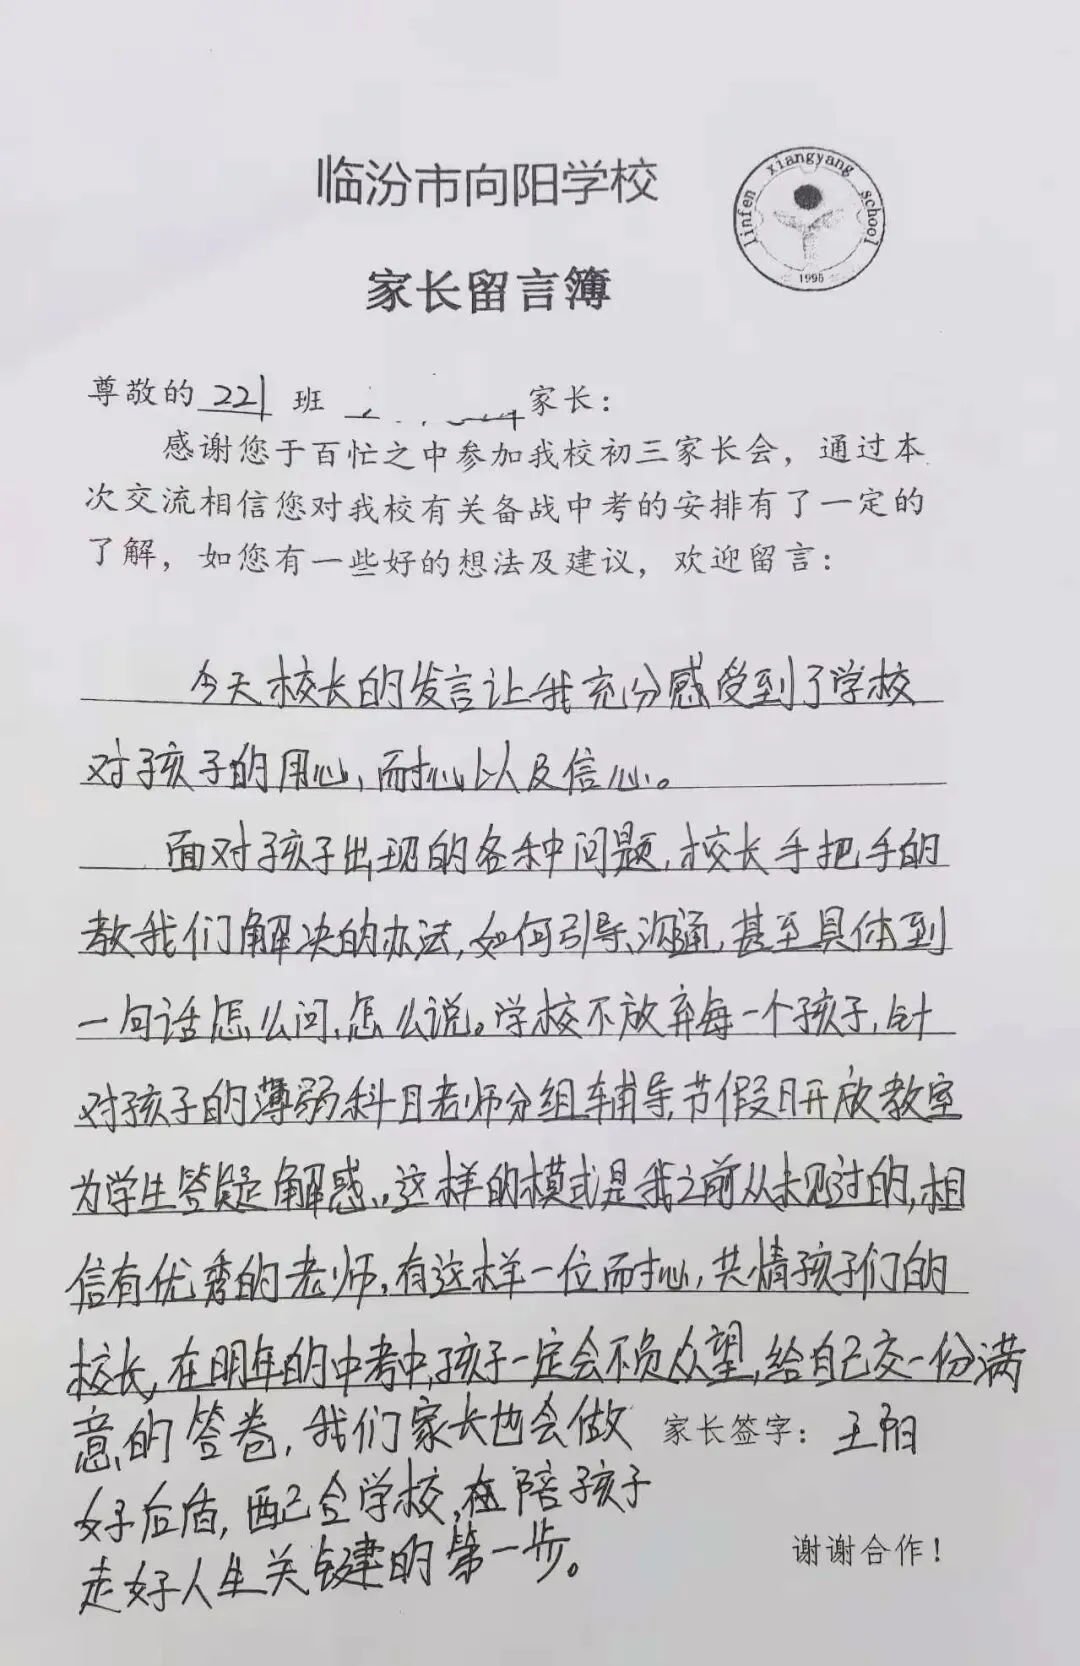 临汾市向阳学校
linfen xiangyang school
1995
家长留言簿
尊敬的 221 班 家长：
感谢您于百忙之中参加我校初三家长会，通过本
次交流相信您对我校有关备战中考的安排有了一定的
了解，如您有一些好的想法及建议，欢迎留言：
今天校长的发言让我充分感受到了学校
对孩子的用心,耐心以及信心。
面对孩子出现的各种问题,校长手把手的
教我们解决的办法,如何引导、沟通,甚至具体到
一句话怎么问,怎么说。学校不放弃每一个孩子,针
对孩子的薄弱科目老师分组辅导,节假日开放教室
为学生答疑解惑..这样的模式是我之前从未见过的,相
信有优秀的老师,有这样一位耐心,共情孩子们的
校长,在明年的中考中,孩子一定会不负众望,给自己交一份满
意的答卷,我们家长也会做 家长签字：王阳
好后盾,配合学校,在陪孩子
走好人生关键的第一步。
谢谢合作！